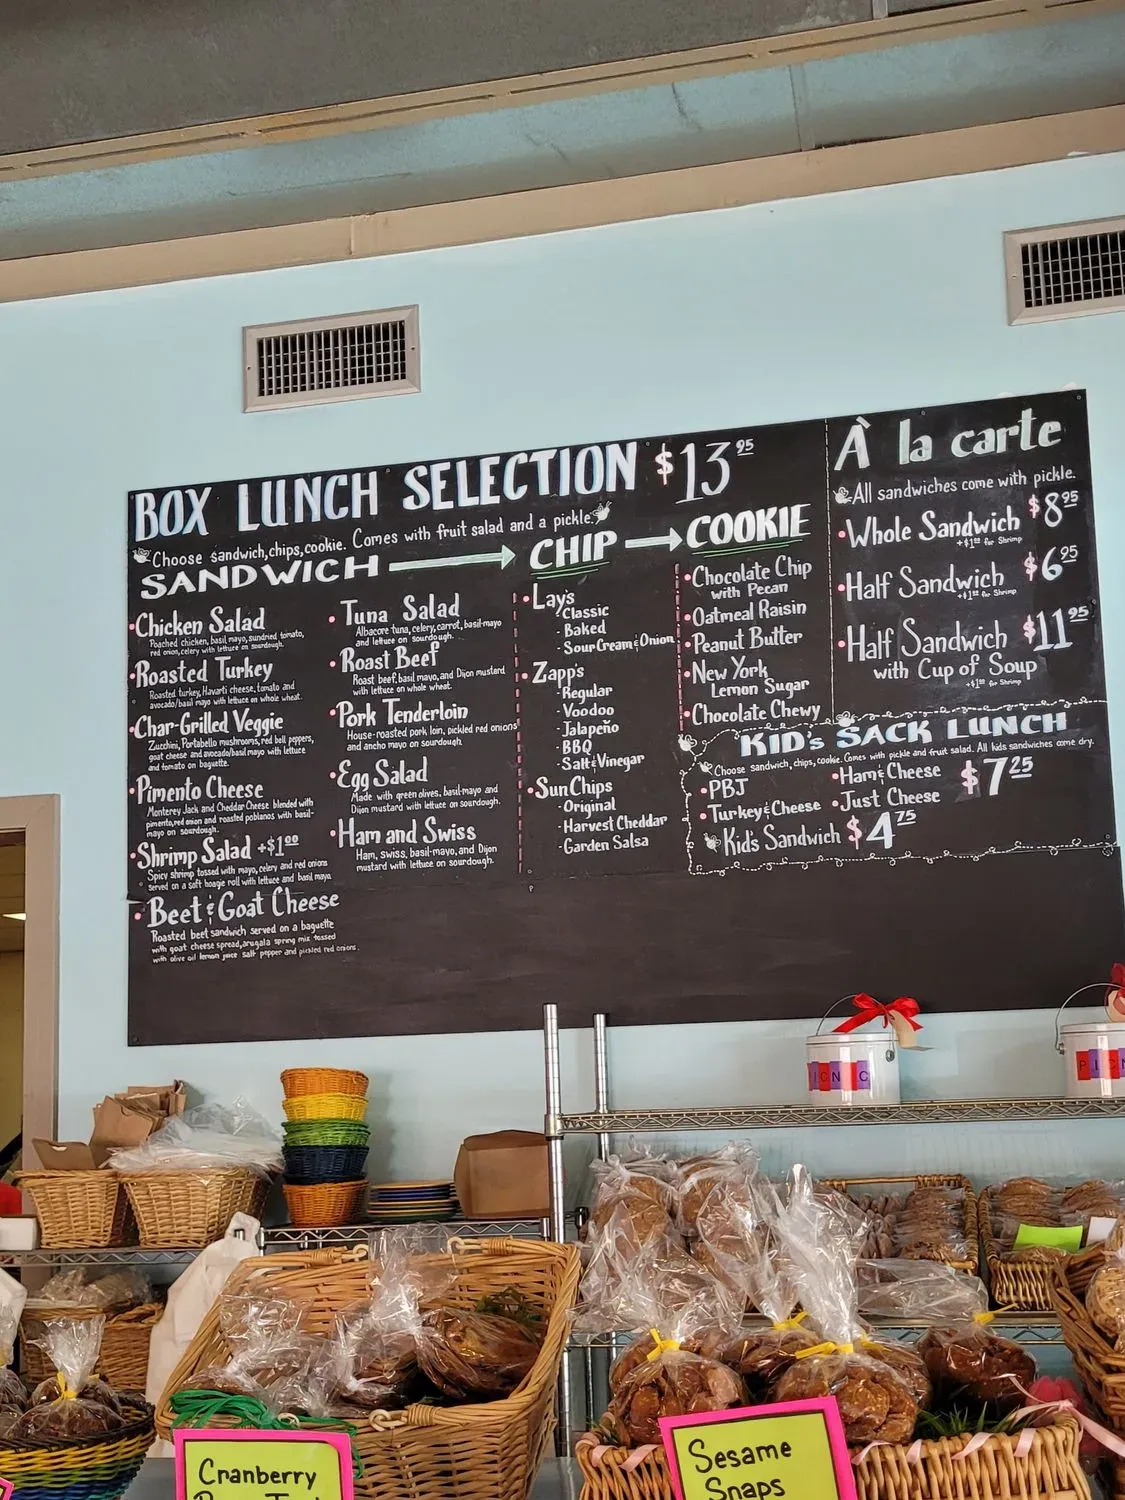 BOX LUNCH SELECTION $13.95
Choose sandwich, chips, cookie. Comes with fruit salad and a pickle.
SANDWICH
Chicken Salad
Poached chicken, basil mayo, sundried tomato,
red onion, celery with lettuce on sourdough.
Roasted Turkey
Roasted turkey, Havarti cheese, tomato and
avocado/basil mayo with lettuce on whole wheat.
Char-Grilled Veggie
Zucchini, Portabello mushrooms, red bell peppers,
goat cheese and avocado/basil mayo with lettuce
and tomato on baguette.
Pimento Cheese
Monterey Jack and Cheddar Cheese blended with
pimento, red onion and roasted poblanos with basil-
mayo on sourdough.
Shrimp Salad +$1.00
Spicy shrimp tossed with mayo, celery and red onions
served on a soft hoagie roll with lettuce and basil mayo
Beet & Goat Cheese
Roasted beet sandwich served on a baguette
with goat cheese spread, arugala spring mix tossed
with olive oil lemon juice salt pepper and pickled red onions.
Tuna Salad
Albacore tuna, celery, carrot, basil-mayo
and lettuce on sourdough.
Roast Beef
Roast beef, basil mayo, and Dijon mustard
with lettuce on whole wheat.
Pork Tenderloin
House-roasted pork loin, pickled red onions
and ancho mayo on sourdough.
Egg Salad
Made with green olives, basil-mayo and
Dijon mustard with lettuce on sourdough.
Ham and Swiss
Ham, swiss, basil-mayo, and Dijon
mustard with lettuce on sourdough.
CHIP
Lay's
Classic
- Baked
- Sour Cream & Onion
Zapp's
- Regular
- Voodoo
Jalapeño
- BBQ
- Salt & Vinegar
SunChips
- Original
- Harvest Cheddar
- Garden Salsa
COOKIE
Chocolate Chip
with Pecan
Oatmeal Raisin
Peanut Butter
New York
Lemon Sugar
Chocolate Chewy
À la carte
All sandwiches come with pickle.
Whole Sandwich $8.95
+$1.00 for Shrimp
Half Sandwich $6.95
+$1.00 for Shrimp
Half Sandwich $11.95
with Cup of Soup
+$1.00 for Shrimp
KID's SACK LUNCH
Choose sandwich, chips, cookie. Comes with pickle and fruit salad. All kids sandwiches come dry.
PBJ
Turkey & Cheese
Ham & Cheese
Just Cheese
$7.25
Kid's Sandwich $4.75
Cranberry
Sesame
Snaps